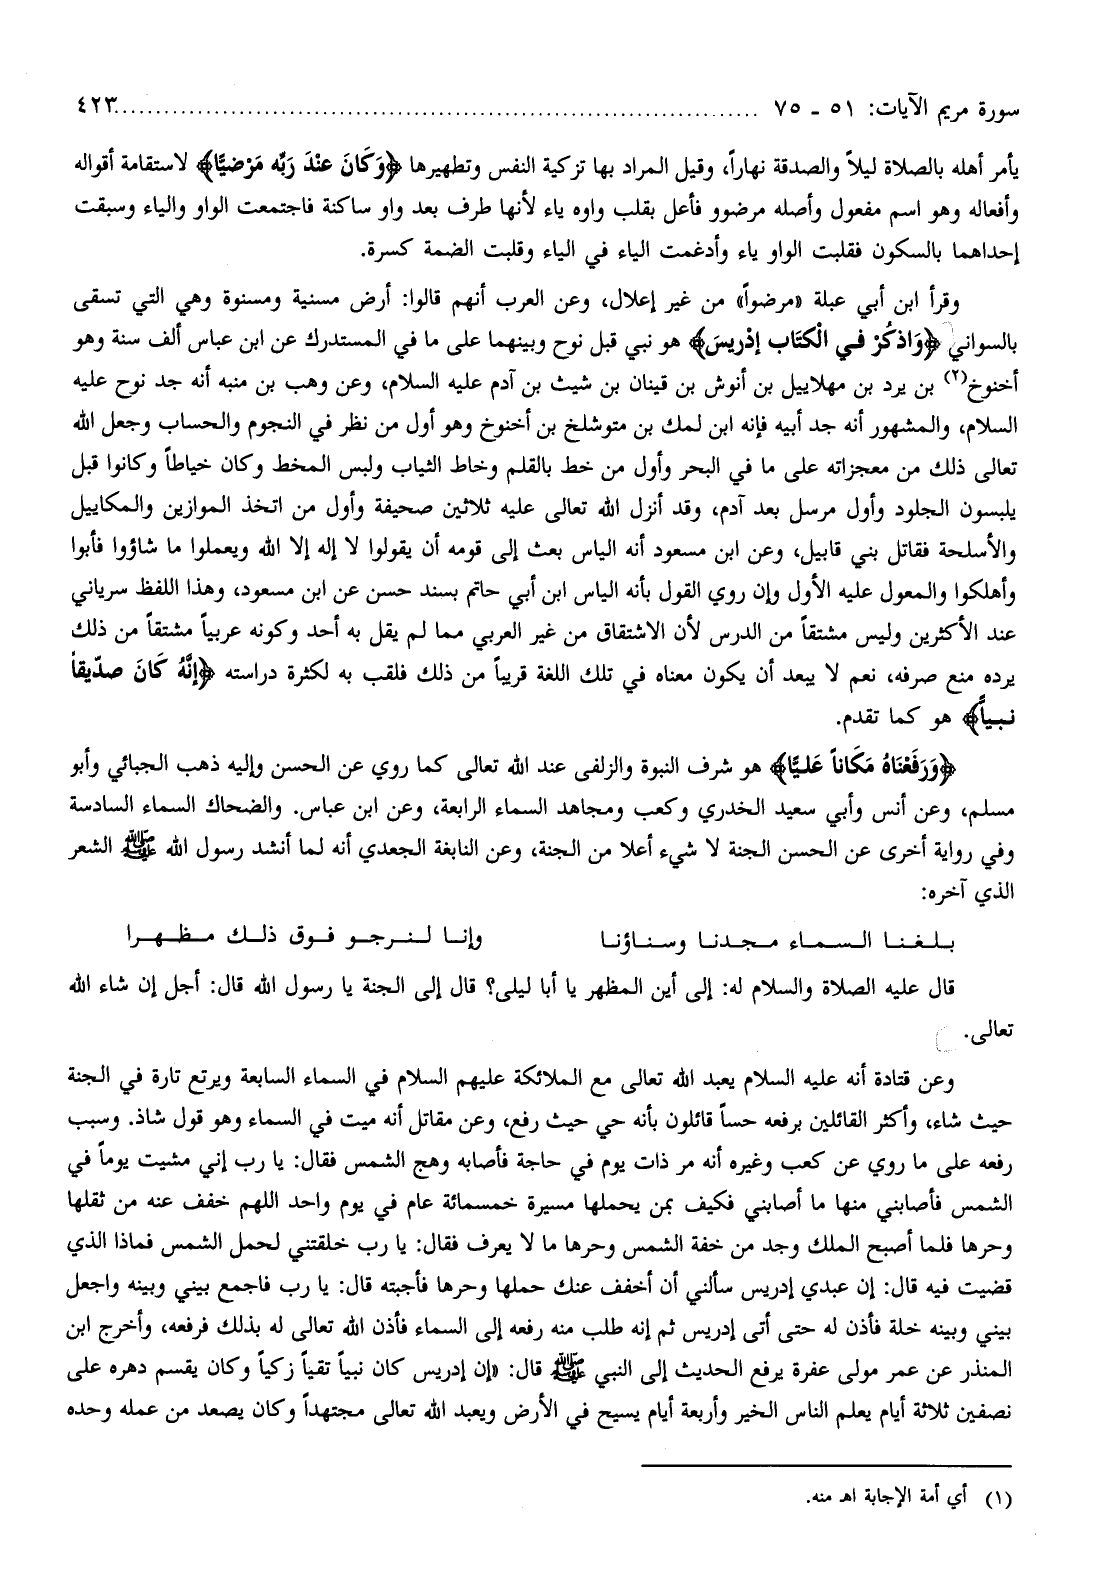 سورة مريم الآيات: ٥١ ـ ٧٥ .......................................................................... ٤٢٣
يأمر أهله بالصلاة ليلاً والصدقة نهاراً، وقيل المراد بها تزكية النفس وتطهيرها ﴿وَكَانَ عنْدَ رَبّه مَرْضيًّا﴾ لاستقامة أقواله
وأفعاله وهو اسم مفعول وأصله مرضوو فأعل بقلب واوه ياء لأنها طرف بعد واو ساكنة فاجتمعت الواو والياء وسبقت
إحداهما بالسكون فقلبت الواو ياء وأدغمت الياء في الياء وقلبت الضمة كسرة.
وقرأ ابن أبي عبلة «مرضواً» من غير إعلال، وعن العرب أنهم قالوا: أرض مسنية ومسنوة وهي التي تسقى
بالسواني ﴿وَاذكُرْ فـي الْكتَاب إدْريسَ﴾ هو نبي قبل نوح وبينهما على ما في المستدرك عن ابن عباس ألف سنة وهو
أخنوخ(٢) بن يرد بن مهلاييل بن أنوش بن قينان بن شيث بن آدم عليه السلام، وعن وهب بن منبه أنه جد نوح عليه
السلام، والمشهور أنه جد أبيه فإنه ابن لمك بن متوشلخ بن أخنوخ وهو أول من نظر في النجوم والحساب وجعل الله
تعالى ذلك من معجزاته على ما في البحر وأول من خط بالقلم وخاط الثياب ولبس المخط وكان خياطاً وكانوا قبل
يلبسون الجلود وأول مرسل بعد آدم، وقد أنزل الله تعالى عليه ثلاثين صحيفة وأول من اتخذ الموازين والمكاييل
والأسلحة فقاتل بني قابيل، وعن ابن مسعود أنه الياس بعث إلى قومه أن يقولوا لا إله إلا الله ويعملوا ما شاؤوا فأبوا
وأهلكوا والمعول عليه الأول وإن روي القول بأنه الياس ابن أبي حاتم بسند حسن عن ابن مسعود، وهذا اللفظ سرياني
عند الأكثرين وليس مشتقاً من الدرس لأن الاشتقاق من غير العربي مما لم يقل به أحد وكونه عربياً مشتقاً من ذلك
يرده منع صرفه، نعم لا يبعد أن يكون معناه في تلك اللغة قريباً من ذلك فلقب به لكثرة دراسته ﴿إنَّهُ كَانَ صدّيقاً
نـبـياً﴾ هو كما تقدم.
﴿وَرَفَعْنَاهُ مَكَاناً عَليًّا﴾ هو شرف النبوة والزلفى عند الله تعالى كما روي عن الحسن وإليه ذهب الجبائي وأبو
مسلم، وعن أنس وأبي سعيد الخدري وكعب ومجاهد السماء الرابعة، وعن ابن عباس. والضحاك السماء السادسة
وفي رواية أخرى عن الحسن الجنة لا شيء أعلا من الجنة، وعن النابغة الجعدي أنه لما أنشد رسول الله ﷺ الشعر
الذي آخره:
بـلـغـنـا الـسـمـاء مـجـدنـا وسـنـاؤنـا وإنـا لـنـرجـو فـوق ذلـك مـظـهـرا
قال عليه الصلاة والسلام له: إلى أين المظهر يا أبا ليلى؟ قال إلى الجنة يا رسول الله قال: أجل إن شاء الله
تعالى.
وعن قتادة أنه عليه السلام يعبد الله تعالى مع الملائكة عليهم السلام في السماء السابعة ويرتع تارة في الجنة
حيث شاء، وأكثر القائلين برفعه حساً قائلون بأنه حي حيث رفع، وعن مقاتل أنه ميت في السماء وهو قول شاذ. وسبب
رفعه على ما روي عن كعب وغيره أنه مر ذات يوم في حاجة فأصابه وهج الشمس فقال: يا رب إني مشيت يوماً في
الشمس فأصابني منها ما أصابني فكيف بمن يحملها مسيرة خمسمائة عام في يوم واحد اللهم خفف عنه من ثقلها
وحرها فلما أصبح الملك وجد من خفة الشمس وحرها ما لا يعرف فقال: يا رب خلقتني لحمل الشمس فماذا الذي
قضيت فيه قال: إن عبدي إدريس سألني أن أخفف عنك حملها وحرها فأجبته قال: يا رب فاجمع بيني وبينه واجعل
بيني وبينه خلة فأذن له حتى أتى إدريس ثم إنه طلب منه رفعه إلى السماء فأذن الله تعالى له بذلك فرفعه، وأخرج ابن
المنذر عن عمر مولى عفرة يرفع الحديث إلى النبي ﷺ قال: «إن إدريس كان نبياً تقياً زكياً وكان يقسم دهره على
نصفين ثلاثة أيام يعلم الناس الخير وأربعة أيام يسيح في الأرض ويعبد الله تعالى مجتهداً وكان يصعد من عمله وحده
(١) أي أمة الإجابة اهـ منه.